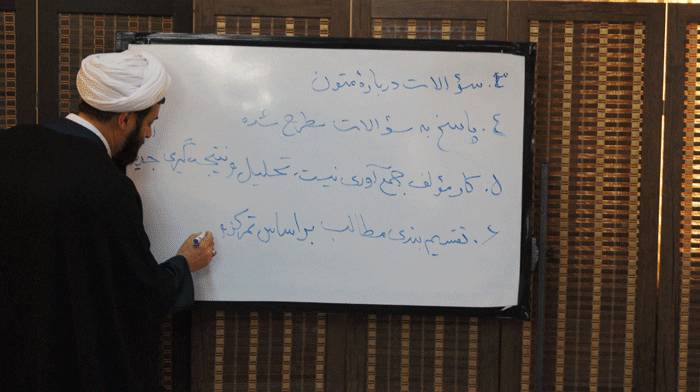 ۳. سؤالات دربارهٔ متون
۴. پاسخ به سؤالات مطرح شده
۵. کار مؤلف جمع آوری نیست، تحلیل و نتیجه‌گیری
۶. تقسیم بندی مطالب براساس تمرکز و